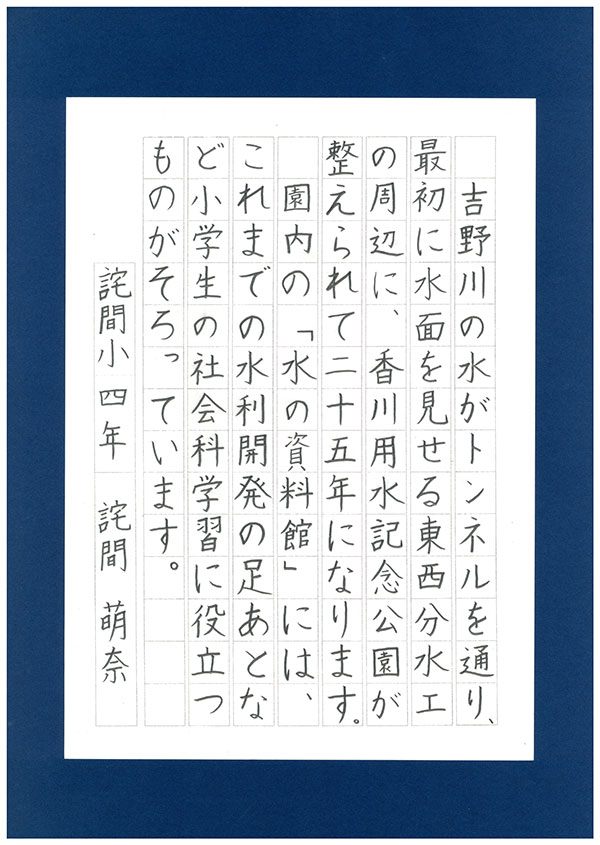 吉野川の水がトンネルを通り、
最初に水面を見せる東西分水工
の周辺に、香川用水記念公園が
整えられて二十五年になります。
　園内の「水の資料館」には、
これまでの水利開発の足あとな
ど小学生の社会科学習に役立つ
ものがそろっています。
詫間小四年　詫間　萌奈